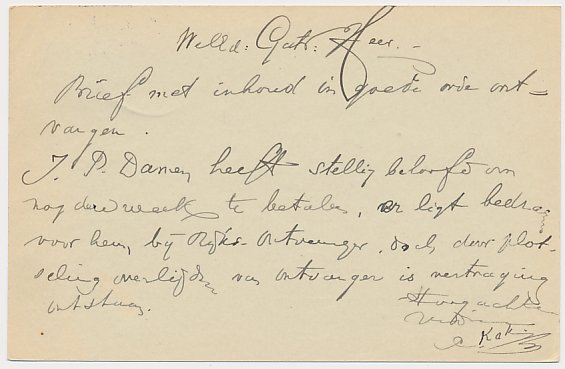 Brief met inhoud in goede orde ont=
vangen.
J. P. Damen heeft stellig beloofd om
nog deze week te betalen, er ligt bedrag
voor hem, bij Rijks-Ontvanger, doch door plot-
seling overlijden van ontvanger is vertraging
ontstaan.
Hoogachtend